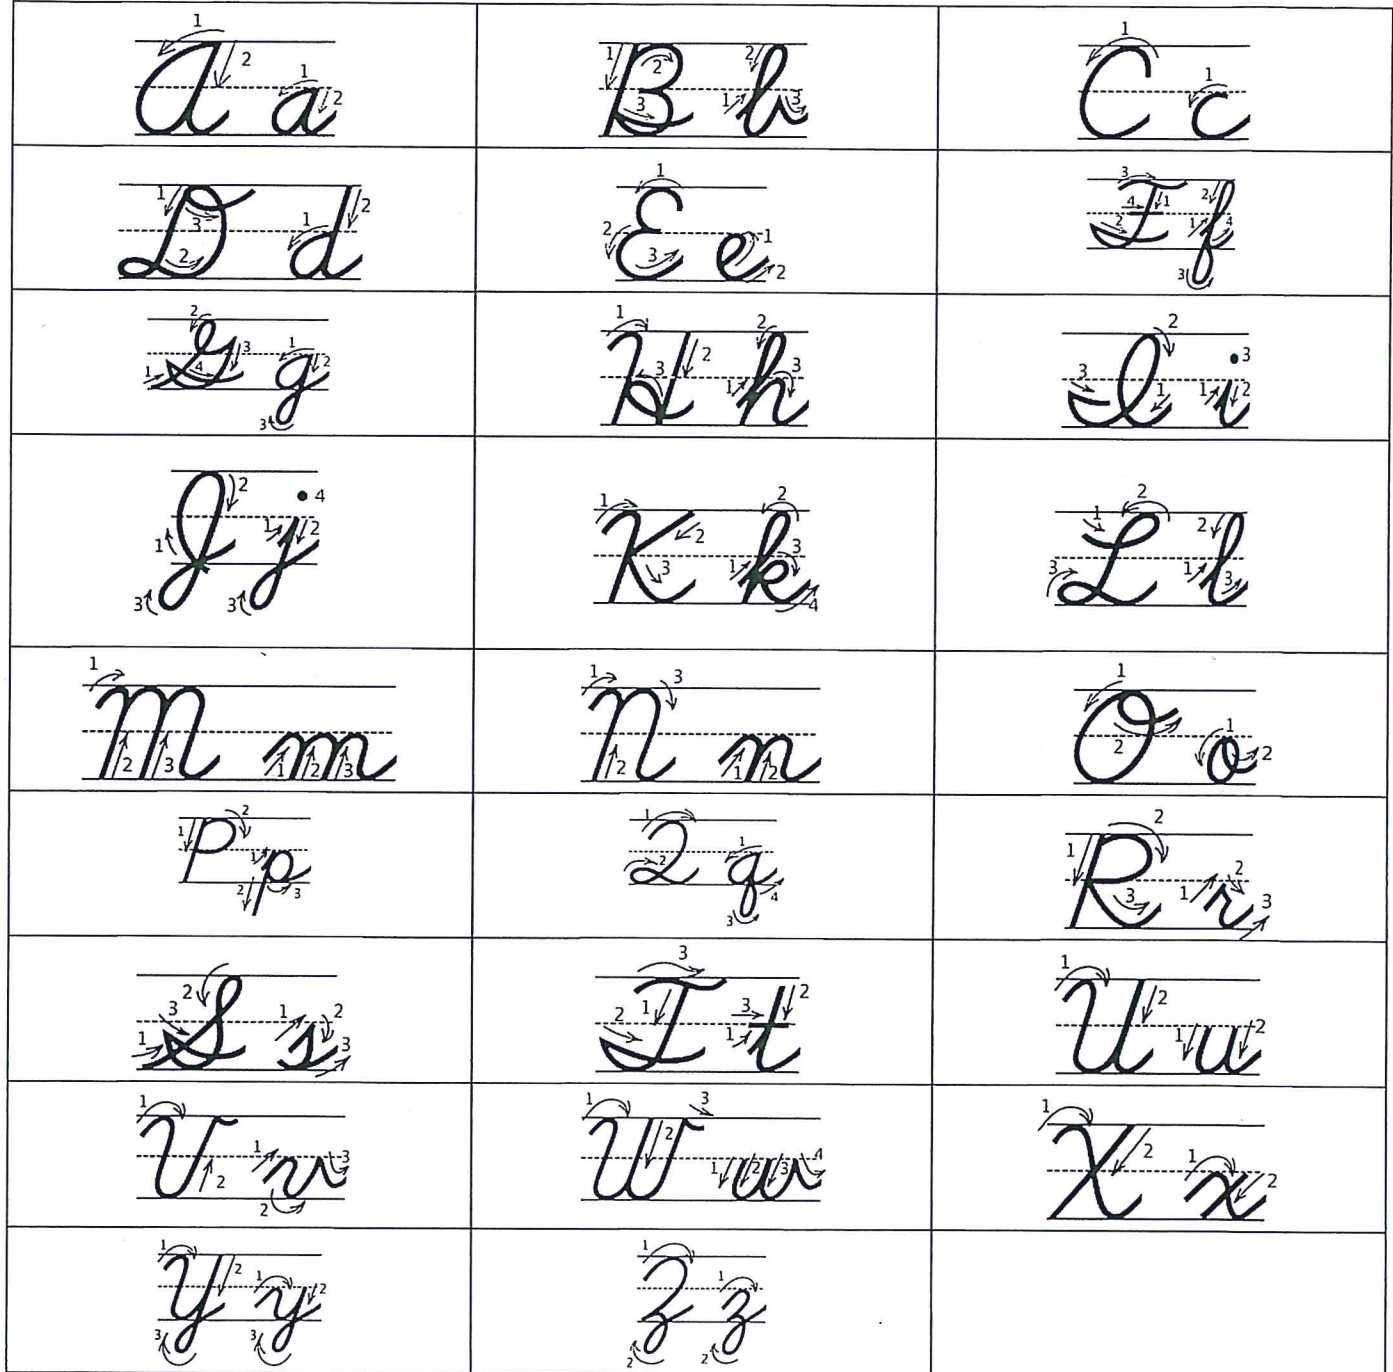 A a B b C c
D d E e F f
G g H h I i
J j K k L l
M m N n O o
P p Q q R r
S s T t U u
V v W w X x
Y y Z z